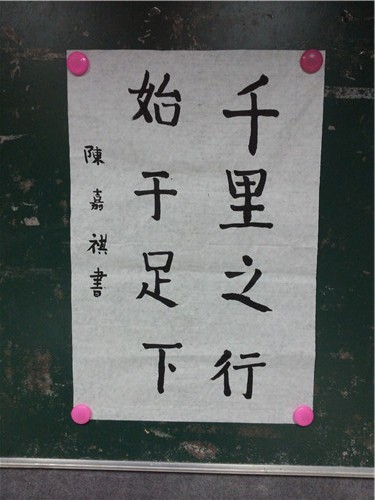 千里之行
始于足下
陳嘉祺書